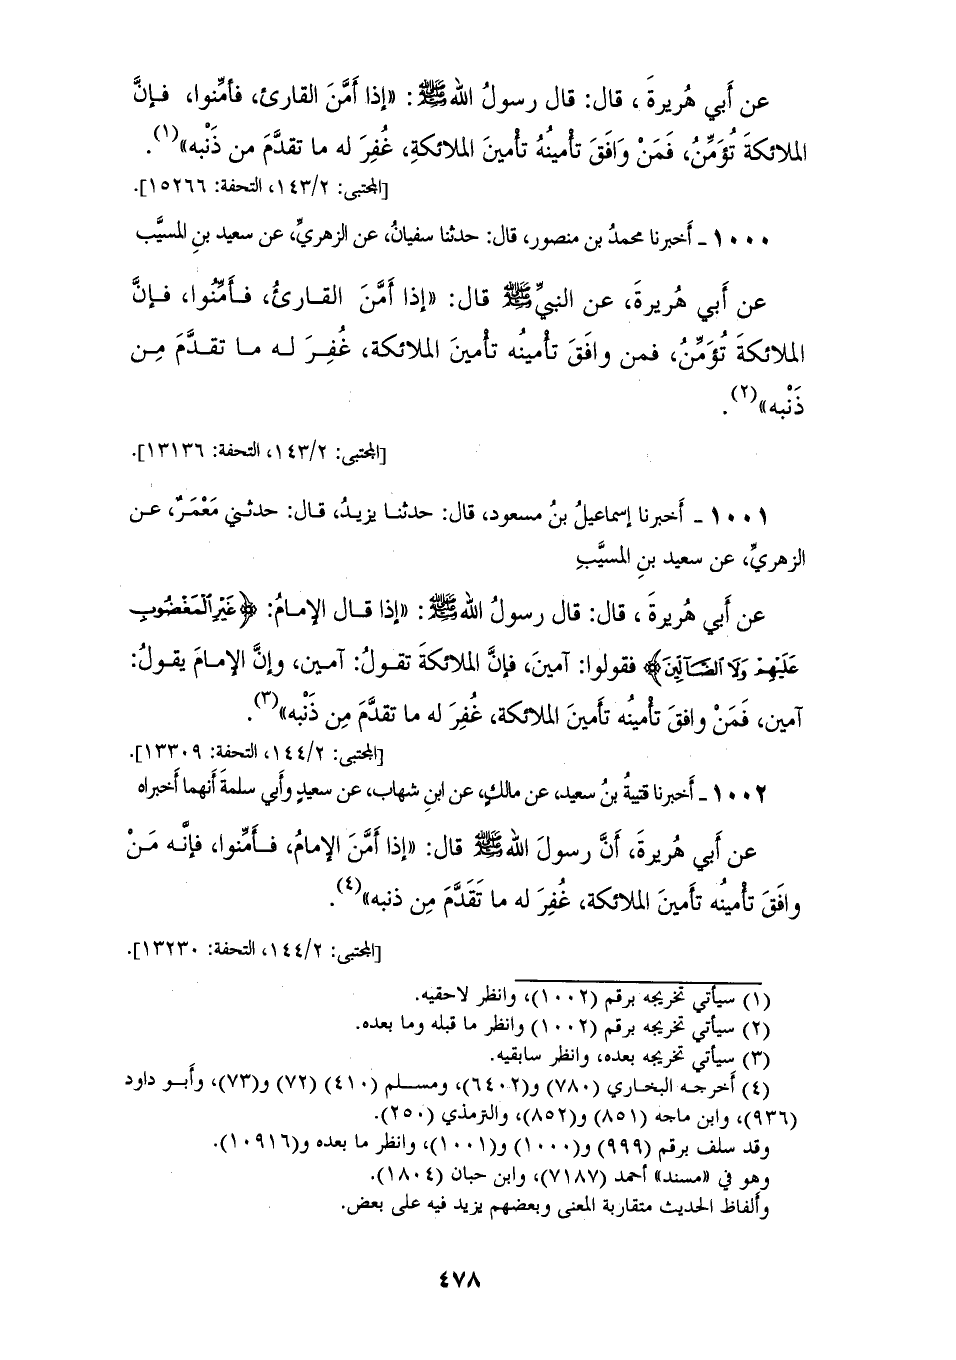 عن أَبي هُريرةَ ، قال: قال رسولُ الله ﷺ : «إذا أَمَّنَ القارئ، فأمِّنوا، فـإنَّ
الملائكةَ تُؤَمِّنُ، فَمَنْ وَافَقَ تأْمينُهُ تأْمينَ الملائكةِ، غُفِرَ له ما تقدَّمَ من ذَنْبه»(١).
[المجتبى: ١٤٣/٢، التحفة: ١٥٢٦٦].
١٠٠٠ ـ أخبرنا محمدُ بن منصور، قال: حدثنا سفيانُ، عن الزهريِّ، عن سعيد بنِ المسيَّب
عن أَبي هُريرةَ، عن النبيِّ ﷺ قال: «إذا أَمَّنَ القـارئُ، فـأَمِّنُوا، فـإنَّ
الملائكةَ تُؤَمِّنُ، فمن وافَقَ تأْمينُه تأْمينَ الملائكة، غُفِـرَ لـه مـا تقـدَّمَ مِـن
ذَنْبه»(٢).
[المجتبى: ١٤٣/٢، التحفة: ١٣١٣٦].
١٠٠١ ـ أَخبرنا إسماعيلُ بنُ مسعود، قال: حدثنـا يزيـدُ، قـال: حدثـني مَعْمَـرٌ، عـن
الزهريِّ، عن سعيد بنِ المسيَّبِ
عن أَبي هُريرةَ ، قال: قال رسولُ الله ﷺ : «إذا قـال الإمـامُ: ﴿غَيْرِ الْمَغْضُوبِ
عَلَيْهِمْ وَلَا الضَّآلِّينَ﴾ فقولوا: آمينَ، فإنَّ الملائكةَ تقـولُ: آمـين، وإنَّ الإمـامَ يقـولُ:
آمين، فَمَنْ وافقَ تأْمينُه تأمينَ الملائكة، غُفِرَ له ما تقدَّمَ مِن ذَنْبه»(٣).
[المجتبى: ١٤٤/٢، التحفة: ١٣٣٠٩].
١٠٠٢ ـ أخبرنا قتيبةُ بنُ سعيد، عن مالكٍ، عن ابنِ شهاب، عن سعيدٍ وأَبي سلمةَ أنهما أَخبراه
عن أَبي هُريرةَ، أَنَّ رسولَ الله ﷺ قال: «إذا أَمَّنَ الإمامُ، فـأَمِّنوا، فإنَّـه مَـنْ
وافَقَ تأْمينُه تأمينَ الملائكة، غُفِرَ له ما تَقَدَّمَ مِن ذنبه»(٤).
[المجتبى: ١٤٤/٢، التحفة: ١٣٢٣٠].
(١) سيأتي تخريجه برقم (١٠٠٢)، وانظر لاحقيه.
(٢) سيأتي تخريجه برقم (١٠٠٢) وانظر ما قبله وما بعده.
(٣) سيأتي تخريجه بعده، وانظر سابقيه.
(٤) أخرجـه البخـاري (٧٨٠) و(٦٤٠٢)، ومسـلم (٤١٠) (٧٢) و(٧٣)، وأَبـو داود
(٩٣٦)، وابن ماجه (٨٥١) و(٨٥٢)، والترمذي (٢٥٠).
وقد سلف برقم (٩٩٩) و(١٠٠٠) و(١٠٠١)، وانظر ما بعده و(١٠٩١٦).
وهو في «مسند» أحمد (٧١٨٧)، وابن حبان (١٨٠٤).
وأَلفاظ الحديث متقاربة المعنى وبعضهم يزيد فيه على بعض.
٤٧٨